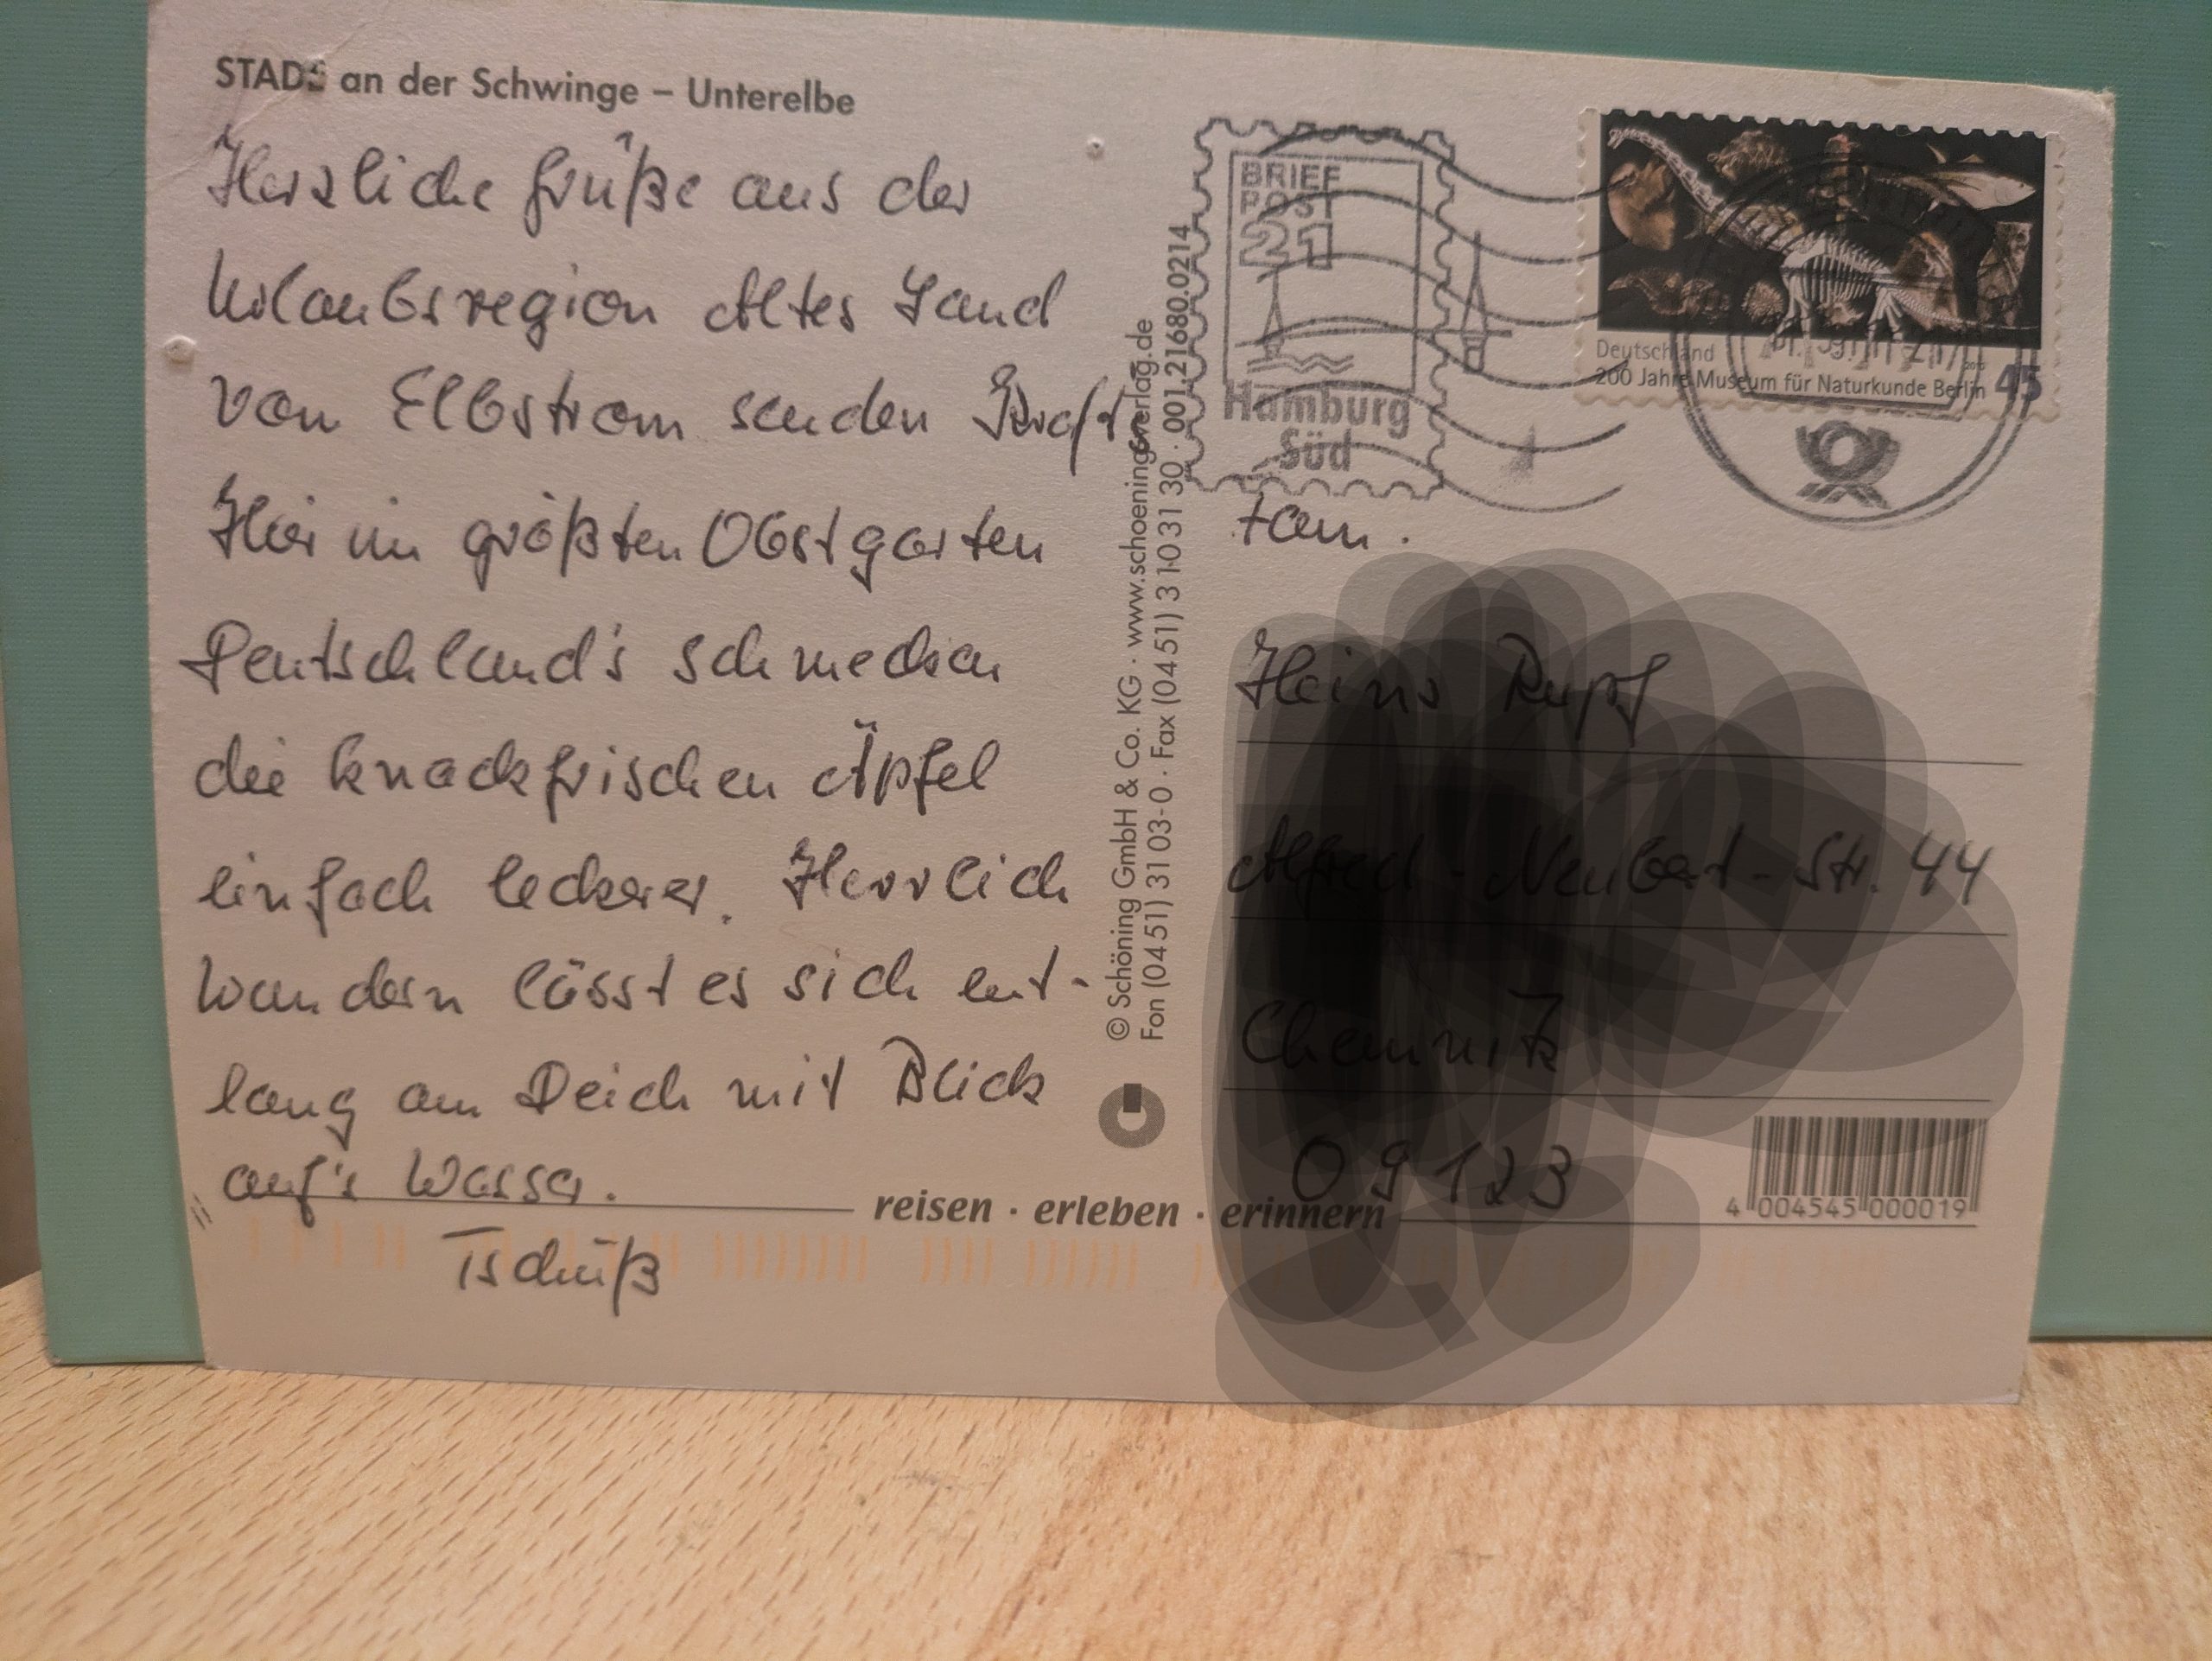 STADE an der Schwinge – Unterelbe
Herzliche Grüße aus der
Urlaubsregion Altes Land
vom Elbstrom senden
Hier im größten Obstgarten
Deutschland's schmecken
die knackfrischen Äpfel
einfach leckerer. Herrlich
wandern lässt es sich ent-
lang am Deich mit Blick
auf's Wasser.
Tschüß
© Schöning GmbH & Co. KG · www.schoeningverlag.de
Fon (04 51) 31 03-0 · Fax (04 51) 3 10 31 30 · 001.21680.0214
BRIEF
POST
21
Hamburg
Süd
Deutschland
200 Jahre Museum für Naturkunde Berlin 45
Fam.
reisen · erleben · erinnern
4 004545 000019